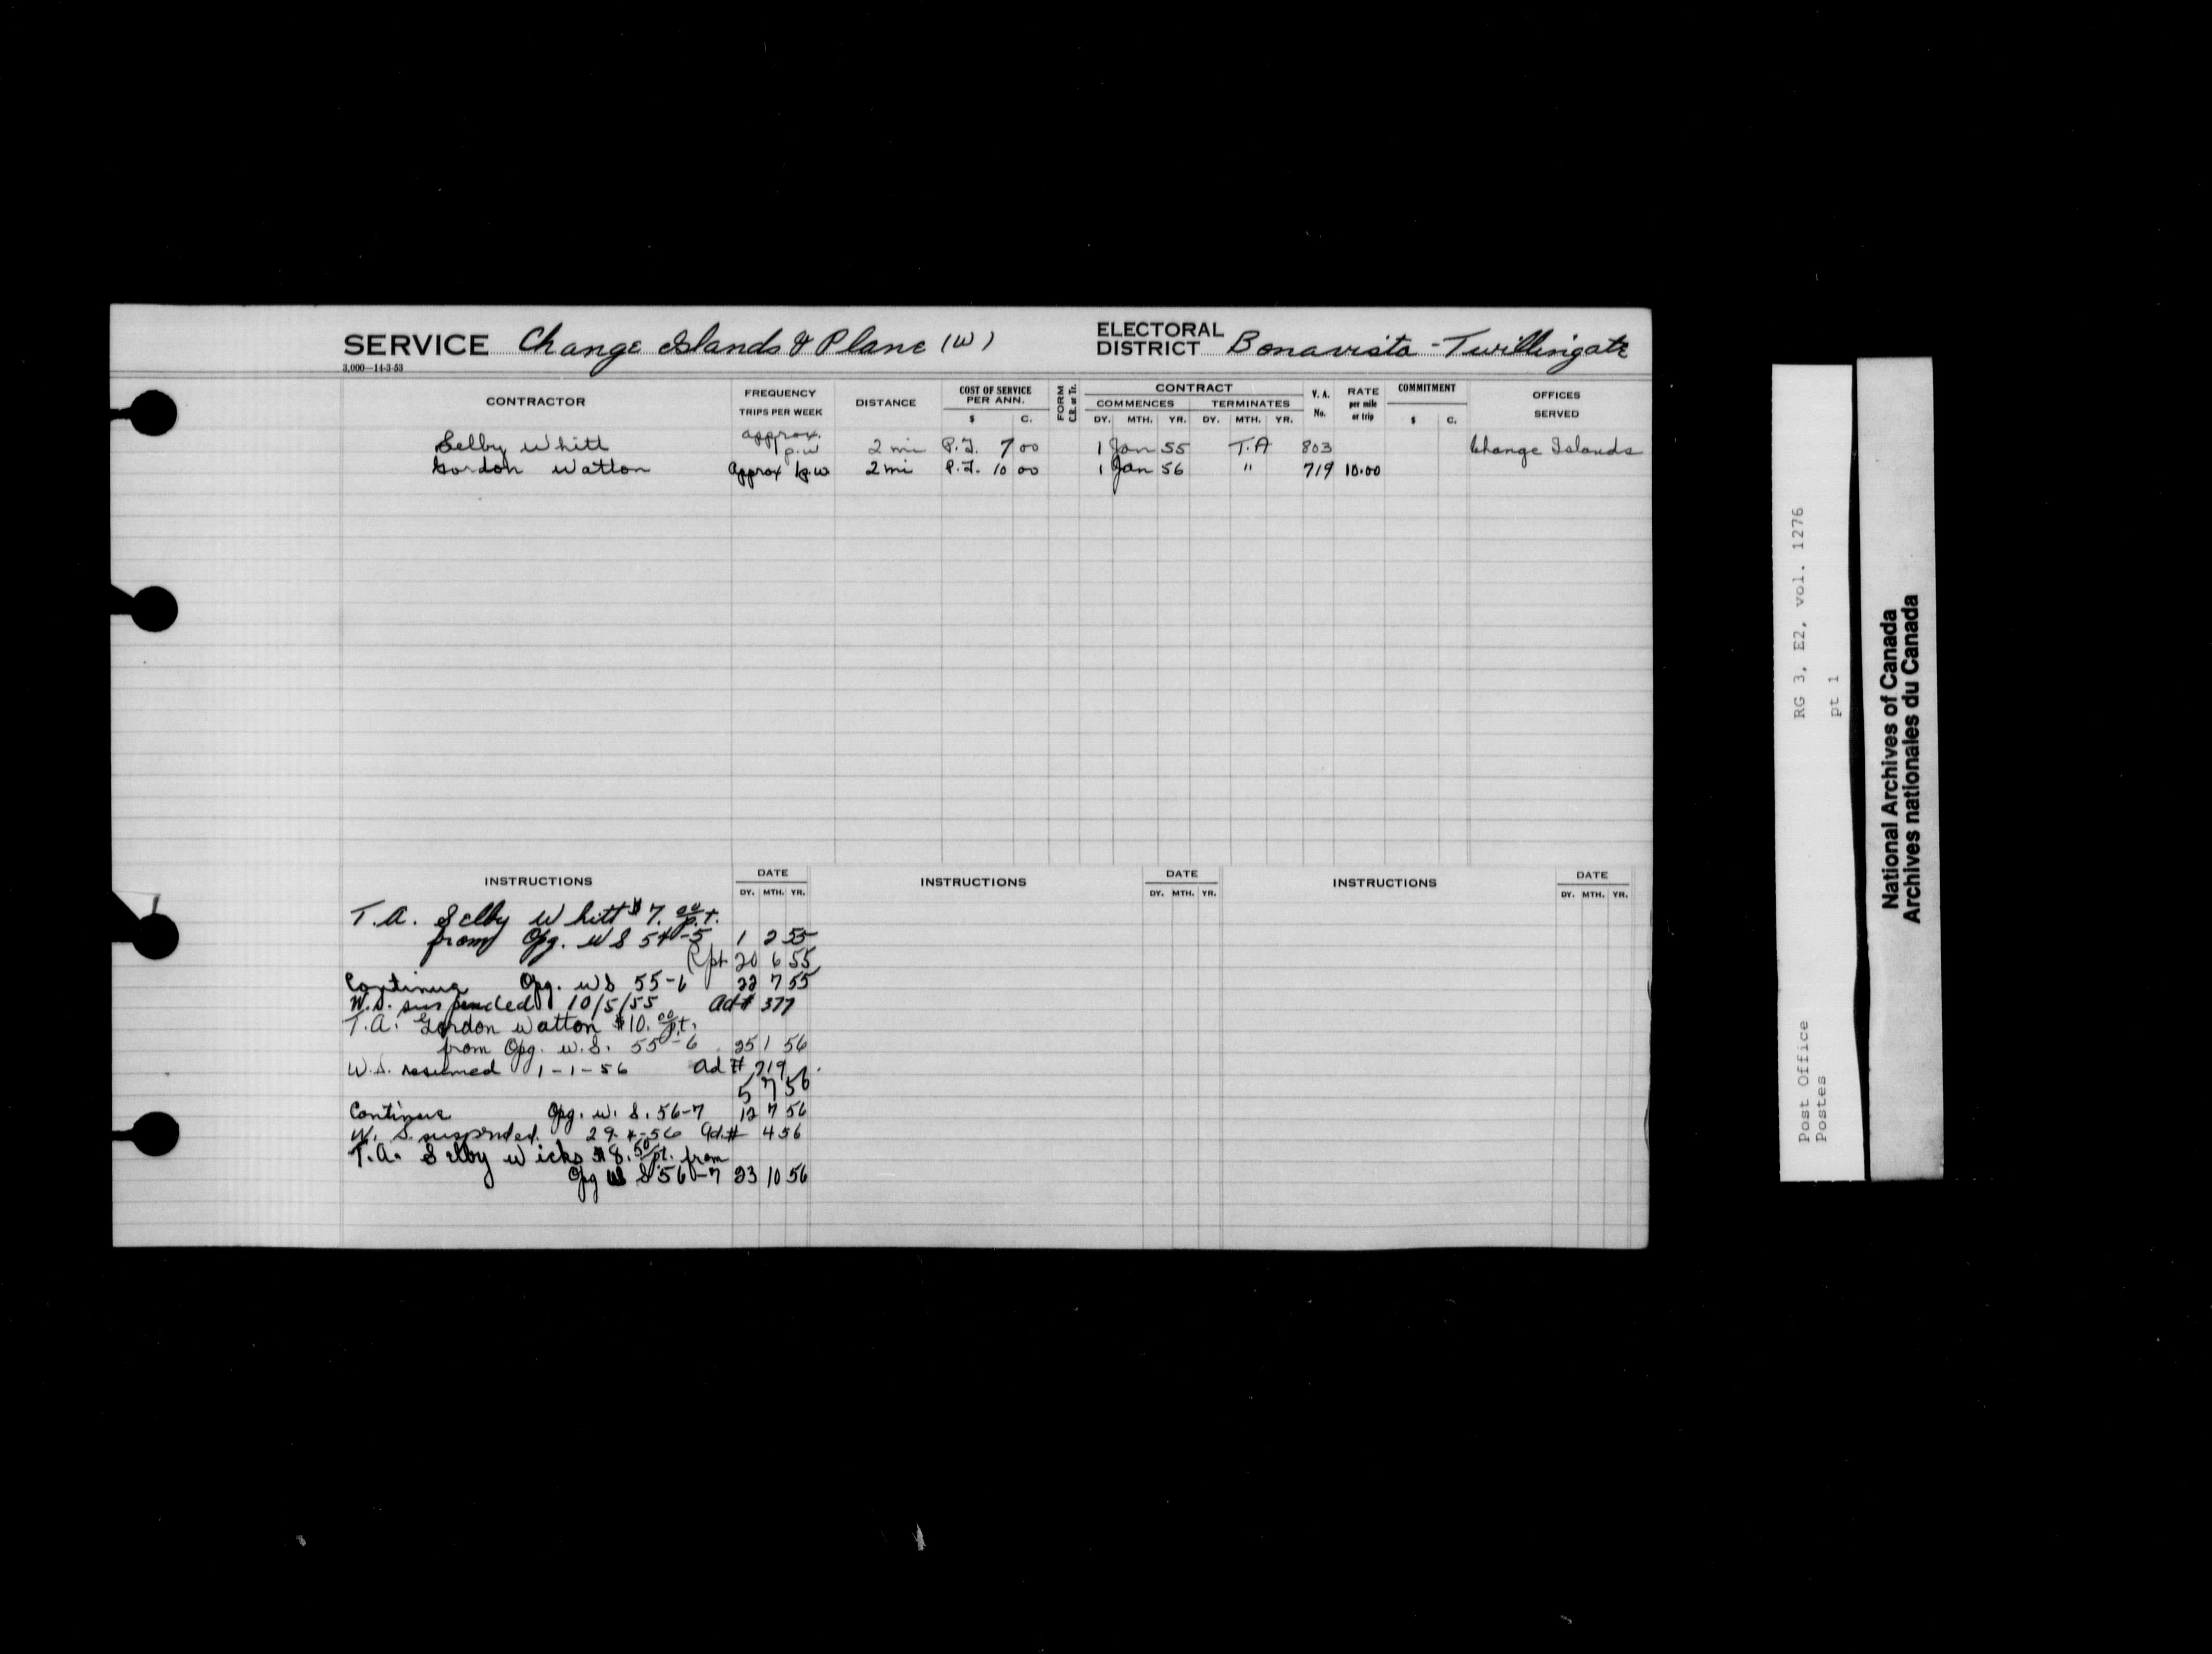 SERVICE Change Islands & Plane (W) ELECTORAL DISTRICT Bonavista - Twillingate
3,000—14-3-53
CONTRACTOR FREQUENCY TRIPS PER WEEK DISTANCE COST OF SERVICE PER ANN. $ C. FORM C.R. or Tr. CONTRACT COMMENCES DY. MTH. YR. TERMINATES DY. MTH. YR. V. A. No. RATE per mile or trip COMMITMENT $ C. OFFICES SERVED
Selby Whitt approx. 1 p.w 2 mi P.T. 7 00 1 Jan 55 T.A 803 Change Islands
Gordon Watton approx 1p.w 2 mi P.T. 10 00 1 Jan 56 " 719 10.00
INSTRUCTIONS DATE DY. MTH. YR. INSTRUCTIONS DATE DY. MTH. YR. INSTRUCTIONS DATE DY. MTH. YR.
T.A. Selby Whitt $7.00 p.t.
from Opg. WS 54-5 1 2 55
Rpt 20 6 55
Continue Opg. WS 55-6 22 7 55
W.S. suspended 10/5/55 Ad# 377
T.A. Gordon Watton $10.00 p.t.
from Opg. W.S. 55-6 25 1 56
W.S. resumed 1-1-56 Ad # 719
5 7 56
Continue Opg. W. S. 56-7 12 7 56
W. S. suspended 29-4-56 Ad.# 456
T.A. Selby Wicks $8.50 pt. from
Opg W S 56-7 23 10 56
RG 3, E2, vol. 1276
pt 1
Post Office
Postes
National Archives of Canada
Archives nationales du Canada